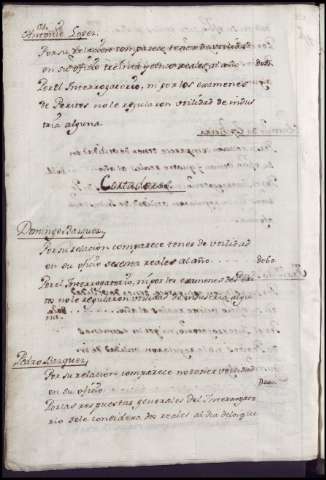 Antonio Lopez
Por su relacion comparece tener de utilidad
en su oficio treinta y cinco reales al año
Por el Interrogatorio, ni por los examenes
de Peritos no le regularon utilidad de indus
tria alguna.
Cortadores
Domingo Bazquez
Por su relacion comparece tener de utilidad
en su oficio sesenta reales al año . . . . de 60
Por el Interrogatorio, ni por los examenes de Peri
tos no le regularon utilidad de industria algu
na.
Pedro Bazquez
Por su relacion comparece no tener utilidad
en su oficio
Por las respuestas generales del Interrogato
rio se le considera dos reales al dia de los que